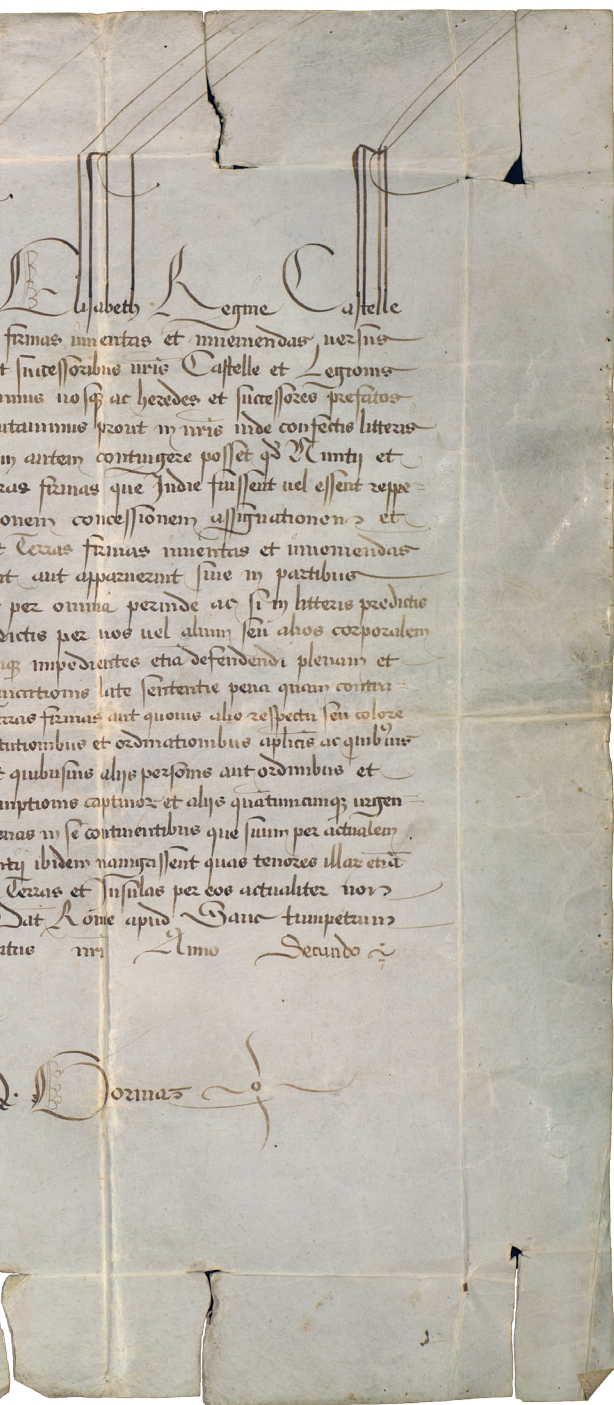 Elisabeth Regine Castelle
firmas inventas et inveniendas versus
t successoribus nris Castelle et Legionis
vosq ac heredes et successores prefatos
prout in nris inde confectis litteris
autem contingere posset qd Nuntij et
ras firmas que Indie fuissent vel essent reppe
onem concessionem assignationem et
t Terras firmas inventas et inveniendas
nt aut apparuerint sive in partibus
per omnia perinde ac si in litteris predictis
dictis per vos vel alium seu alios corporalem
impedientes etiā defendendi plenam et
late sententie pena quam contra
ras firmas aut quovis alio respectu seu colore
tutionibus et ordinationibus aplicis ac quibusvis
t quibusvis alijs personis aut ordinibus et
et alijs quātumcunq urgen
in se continentibus que suum per actualem
ntij ibidem navigassent quas tenores illar etiā
Terras et Insulas per eos actualiter non
Dat Rome apud Sanc tumpetrum
atus nri Anno Secundo
D. Gormaz